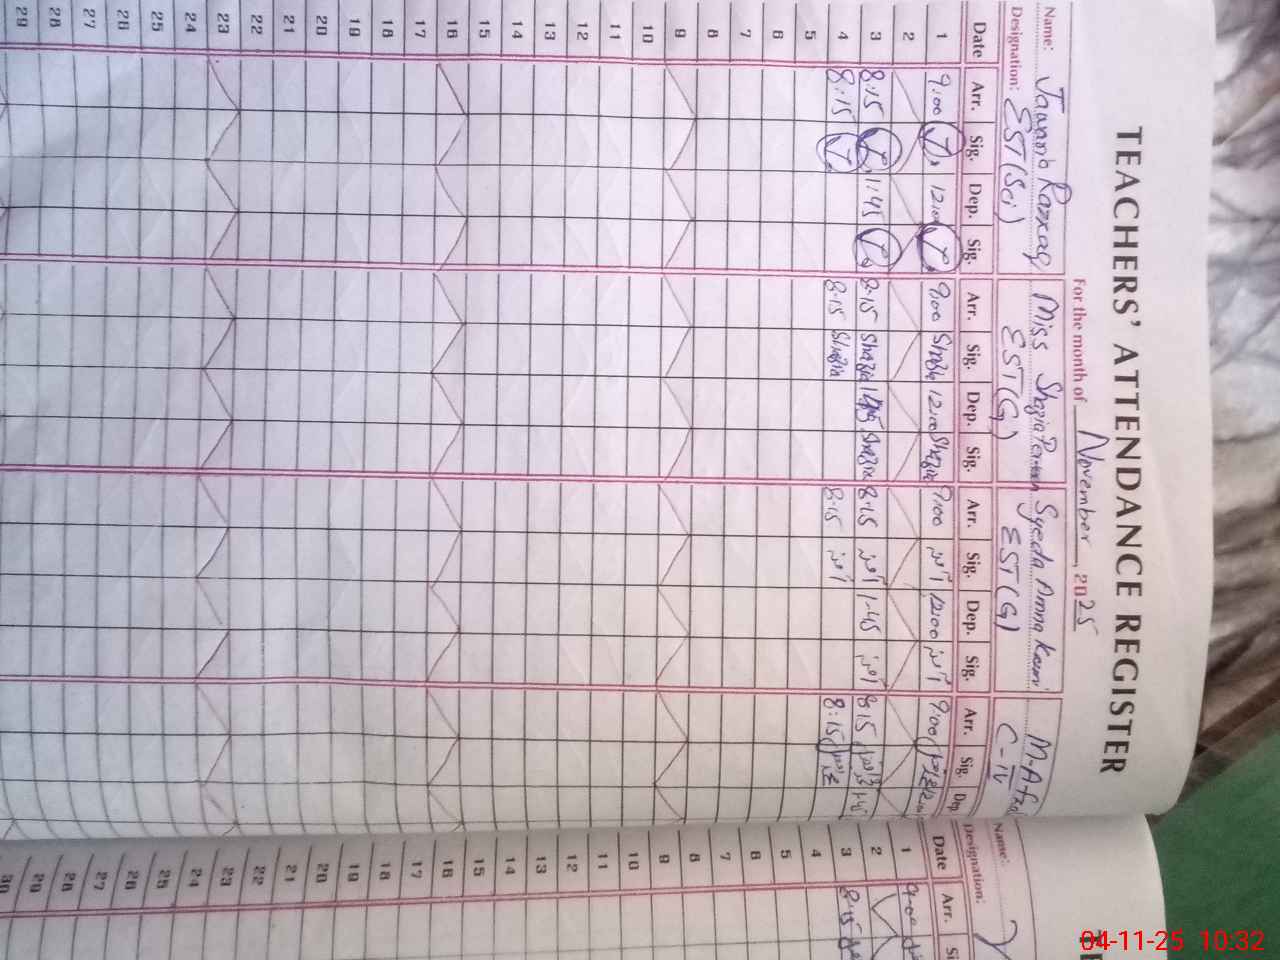 TEACHERS' ATTENDANCE REGISTER
For the month of November, 2025
Name: Razzaq Miss Shazia Syeda Amna M-Afzal
Designation: EST(Sci) EST(G) EST(G) C-IV
Date Arr. Sig. Dep. Sig. Arr. Sig. Dep. Sig. Arr. Sig. Dep. Sig. Arr. Sig. Dep.
1 9:00 12:00 9:00 Shazia 12:00 Shazia 9:00 12:00 9:00
2
3 8:15 1:45 8-15 Shazia Shazia 8-15 1-45 8:15
4 8:15 8-15 Shazia 8-15 8:15
5
6
7
8
9
10
11
12
13
14
15
16
17
18
19
20
21
22
23
24
25
26
27
28
29
Name:
Designation:
Date Arr.
1 9-00
2
3 8-15
4
5
6
7
8
9
10
11
12
13
14
15
16
17
18
19
20
21
22
23
24
25
26
27
28
29
30
04-11-25 10:32